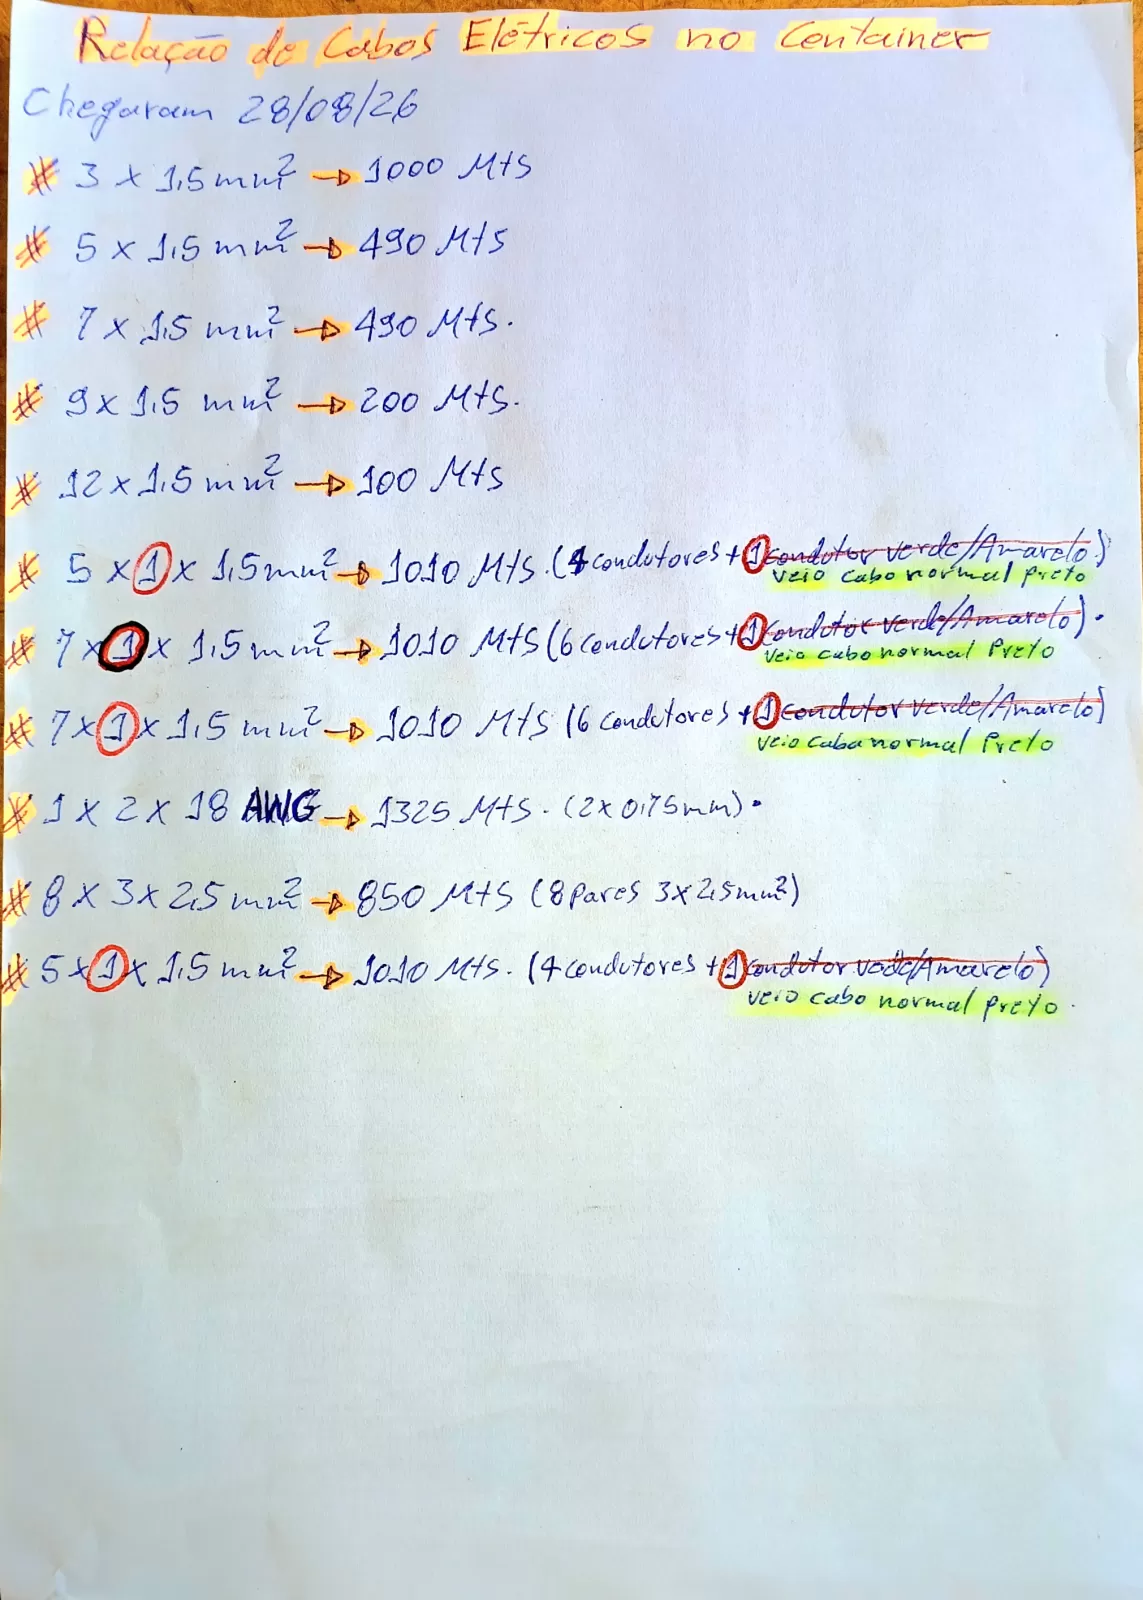 Relação de Cabos Elétricos no Container
Chegaram 28/08/26
# 3 x 1,5 mm² → 1000 Mts
# 5 x 1,5 mm² → 490 Mts
# 7 x 1,5 mm² → 490 Mts.
# 9 x 1,5 mm² → 200 Mts.
# 12 x 1,5 mm² → 100 Mts
# 5 x 1 x 1,5 mm² → 1010 Mts. (4 condutores + 1 condutor verde/Amarelo)
veio cabo normal preto
# 7 x 1 x 1,5 mm² → 1010 Mts (6 condutores + 1 condutor verde/Amarelo).
veio cabo normal Preto
# 7 x 1 x 1,5 mm² → 1010 Mts (6 condutores + 1 condutor verde/Amarelo)
veio cabo normal Preto
# 1 x 2 x 18 AWG → 1325 Mts. (2 x 0,75mm).
# 8 x 3 x 2,5 mm² → 850 Mts (8 Pares 3x2,5mm²)
# 5 x 1 x 1,5 mm² → 1010 Mts. (4 condutores + 1 condutor vede/Amarelo)
veio cabo normal preto.